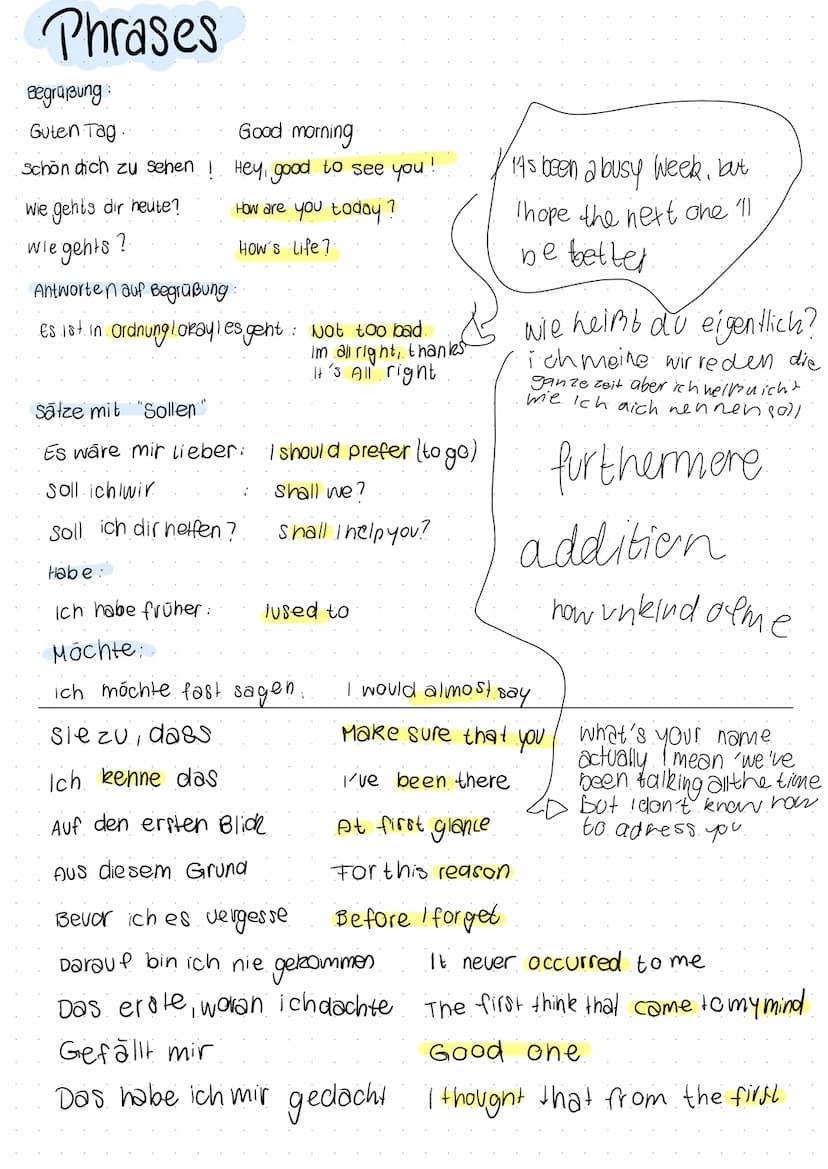 Phrases
Begrüßung:
Guten Tag. Good morning
Schön dich zu sehen! Hey, good to see you!
Wie gehts dir heute? How are you today?
Wie gehts? How's life?
Antworten auf Begrüßung:
Es ist in Ordnung/okay/es geht: Not too bad
Im all right, thanks
It's All right
Sätze mit "Sollen"
Es wäre mir lieber: I should prefer (to go)
Soll ich/wir : Shall we?
Soll ich dir helfen? Shall I help you?
Habe:
Ich habe früher: I used to
Möchte:
ich möchte fast sagen. I would almost say
Sie zu, dass Make sure that you
Ich kenne das I've been there
Auf den ersten Blick At first glance
Aus diesem Grund For this reason
Bevor ich es vergesse Before I forget
Darauf bin ich nie gekommen It never occurred to me
Das erste, woran ich dachte The first think that came to my mind
Gefällt mir Good one
Das habe ich mir gedacht I thought that from the first
It's been a busy week, but
I hope the next one 'll
be better
Wie heißt du eigentlich?
ich meine wir reden die
ganze zeit aber ich weiß nicht
wie ich dich nennen soll
furthermore
addition
how unkind of me
what's your name
actually I mean 'we've
been talking all the time
but I don't know how
to adress you